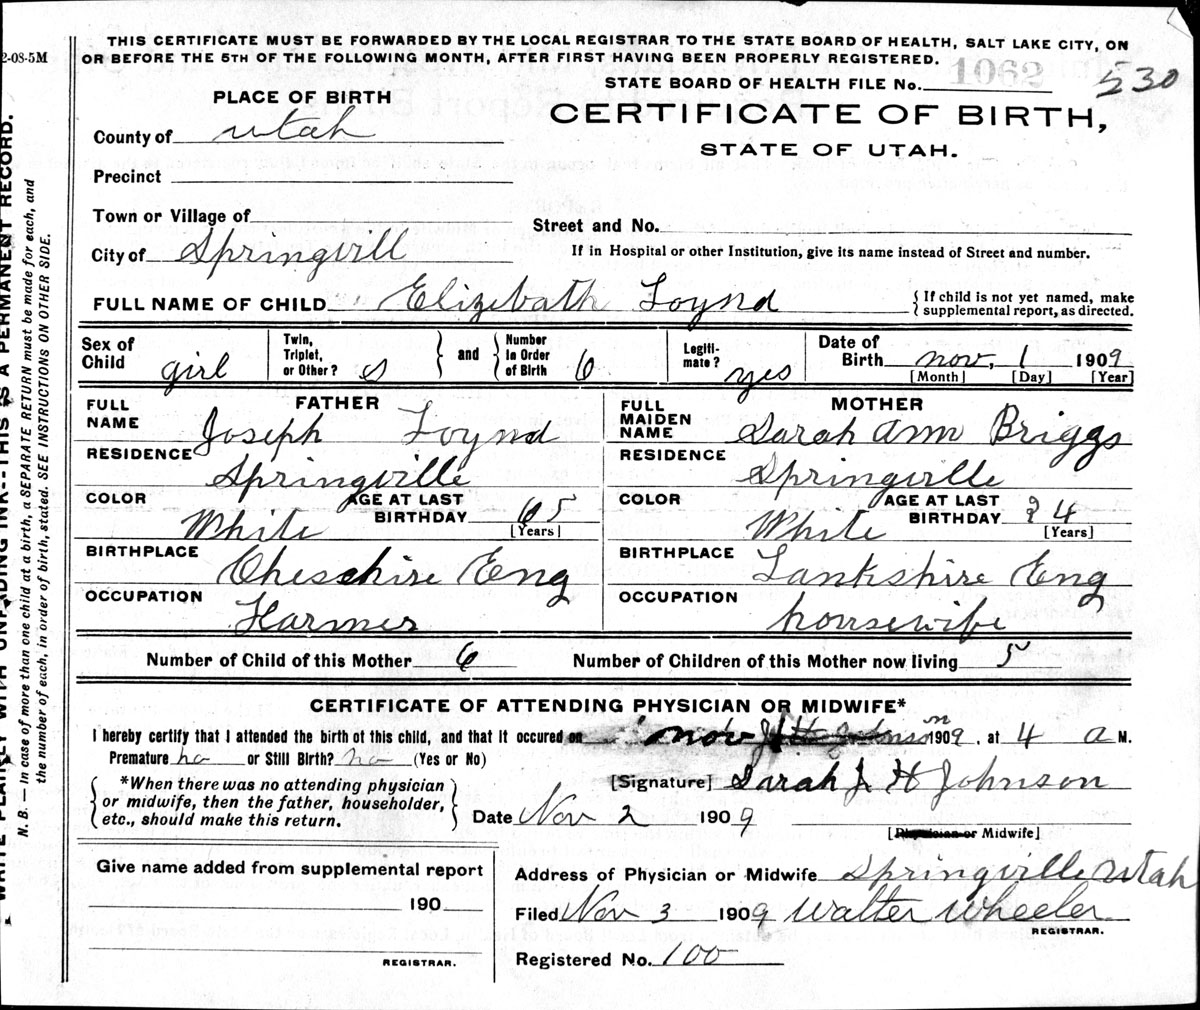 THIS CERTIFICATE MUST BE FORWARDED BY THE LOCAL REGISTRAR TO THE STATE BOARD OF HEALTH, SALT LAKE CITY, ON
OR BEFORE THE 5TH OF THE FOLLOWING MONTH, AFTER FIRST HAVING BEEN PROPERLY REGISTERED.
2-08-5M
STATE BOARD OF HEALTH FILE No. 1062 530
PLACE OF BIRTH
CERTIFICATE OF BIRTH,
STATE OF UTAH.
County of Utah
Precinct
Town or Village of
Street and No.
City of Springvill
If in Hospital or other Institution, give its name instead of Street and number.
FULL NAME OF CHILD Elizebath Loynd
{ If child is not yet named, make
supplemental report, as directed.
Sex of
Child girl
Twin,
Triplet,
or Other? s
} and {
Number
in Order
of Birth 6
Legiti-
mate? yes
Date of
Birth nov, 1 1909
[Month] [Day] [Year]
FATHER
FULL
NAME Joseph Loynd
RESIDENCE Springville
COLOR White
AGE AT LAST
BIRTHDAY 65
[Years]
BIRTHPLACE Cheschire Eng
OCCUPATION Farmer
MOTHER
FULL
MAIDEN
NAME Sarah ann Briggs
RESIDENCE Springville
COLOR White
AGE AT LAST
BIRTHDAY 34
[Years]
BIRTHPLACE Lankshire Eng
OCCUPATION housewife
Number of Child of this Mother 6 Number of Children of this Mother now living 5
CERTIFICATE OF ATTENDING PHYSICIAN OR MIDWIFE*
I hereby certify that I attended the birth of this child, and that it occured on nov 1909, at 4 a M.
Premature no or Still Birth? no (Yes or No)
{ *When there was no attending physician
or midwife, then the father, householder,
etc., should make this return. }
[Signature] Sarah J H Johnson
Date Nov 2 1909
[Physician or Midwife]
Give name added from supplemental report
190
REGISTRAR.
Address of Physician or Midwife Springville Utah
Filed Nov 3 1909 Walter Wheeler
REGISTRAR.
Registered No. 100
WRITE PLAINLY WITH UNFADING INK--THIS IS A PERMANENT RECORD.
N. B. — In case of more than one child at a birth, a SEPARATE RETURN must be made for each, and
the number of each, in order of birth, stated. SEE INSTRUCTIONS ON OTHER SIDE.